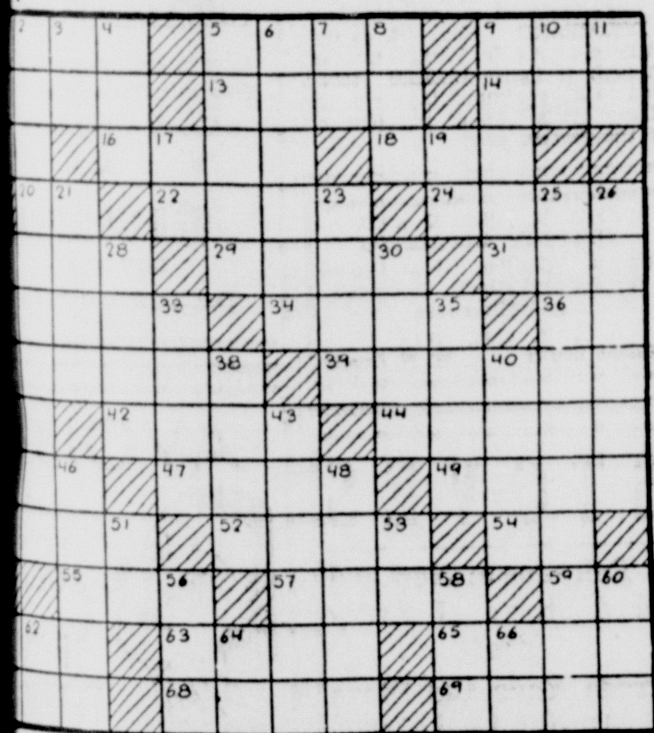 2 3 4 5 6 7 8 9 10 11
13 14
16 17 18 19
20 21 22 23 24 25 26
28 29 30 31
33 34 35 36
38 39 40
42 43 44
46 47 48 49
51 52 53 54
55 56 57 58 59 60
62 63 64 65 66
68 69